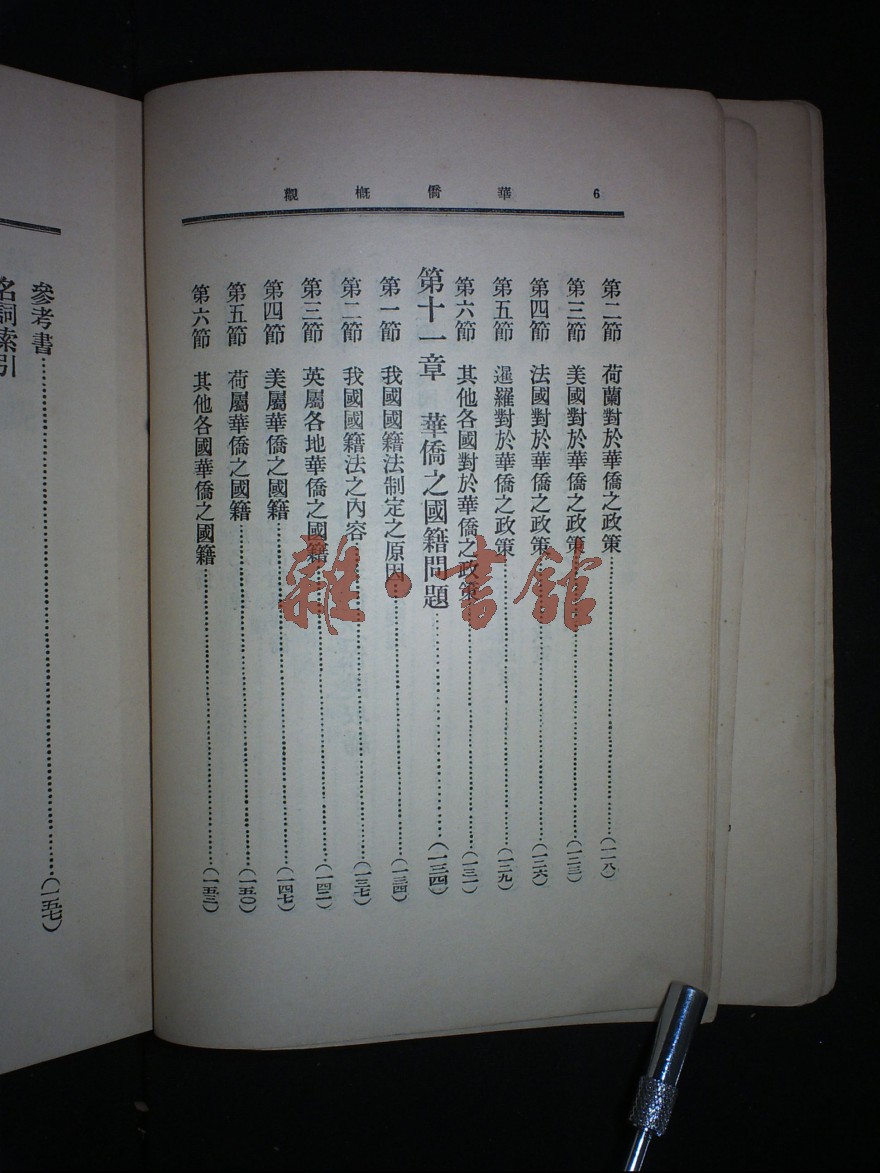 6 華僑概觀
第二節 荷蘭對於華僑之政策……(一一八)
第三節 美國對於華僑之政策……(一二三)
第四節 法國對於華僑之政策……(一二六)
第五節 暹羅對於華僑之政策……(一二九)
第六節 其他各國對於華僑之政策……(一三一)
第十一章 華僑之國籍問題……(一三四)
第一節 我國國籍法制定之原因……(一三四)
第二節 我國國籍法之內容……(一三七)
第三節 英屬各地華僑之國籍……(一四二)
第四節 美屬華僑之國籍……(一四七)
第五節 荷屬華僑之國籍……(一五〇)
第六節 其他各國華僑之國籍……(一五三)
參考書……(一五七)
名詞索引
雜·書館